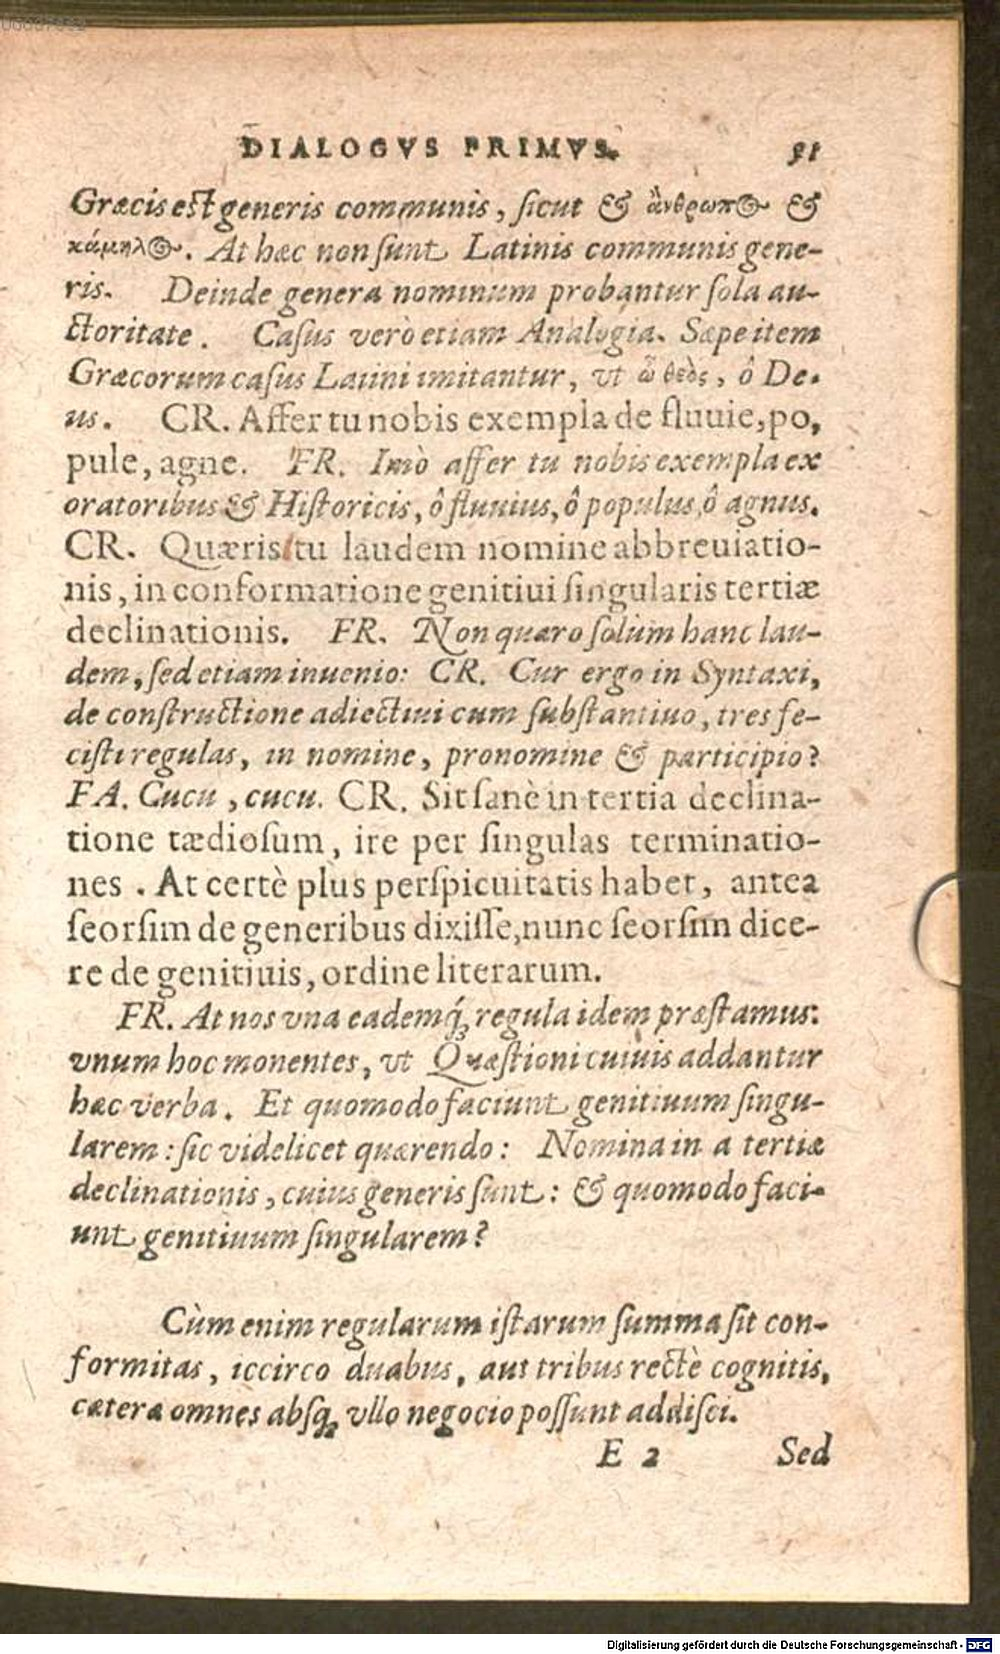 DIALOGVS PRIMVS. 51
Græcis est generis communis, sicut & ἄνθρωπος &
κάμηλος. At hæc non sunt Latinis communis gene-
ris. Deinde genera nominum probantur sola au-
ctoritate. Casus verò etiam Analogia. Sæpe item
Græcorum casus Latini imitantur, vt ὦ θεὸς, ô De-
us. CR. Affer tu nobis exempla de fluuie, po,
pule, agne. FR. Imò affer tu nobis exempla ex
oratoribus & Historicis, ô fluuius, ô populus, ô agnus.
CR. Quæris tu laudem nomine abbreuiatio-
nis, in conformatione genitiui singularis tertiæ
declinationis. FR. Non quæro solùm hanc lau-
dem, sed etiam inuenio: CR. Cur ergo in Syntaxi,
de constructione adiectiui cum substantiuo, tres fe-
cisti regulas, in nomine, pronomine & participio?
FA. Cucu, cucu. CR. Sit sanè in tertia declina-
tione tædiosum, ire per singulas terminatio-
nes. At certè plus perspicuitatis habet, antea
seorsim de generibus dixisse, nunc seorsim dice-
re de genitiuis, ordine literarum.
FR. At nos vna eademq́; regula idem præstamus:
vnum hoc monentes, vt Quæstioni cuiuis addantur
hæc verba. Et quomodo faciunt genitiuum singu-
larem: sic videlicet quærendo: Nomina in a tertiæ
declinationis, cuius generis sunt: & quomodo faci-
unt genitiuum singularem?
Cùm enim regularum istarum summa sit con-
formitas, iccirco duabus, aut tribus rectè cognitis,
cætera omnes absq; vllo negocio possunt addisci.
E 2 Sed
Digitalisierung gefördert durch die Deutsche Forschungsgemeinschaft - DFG